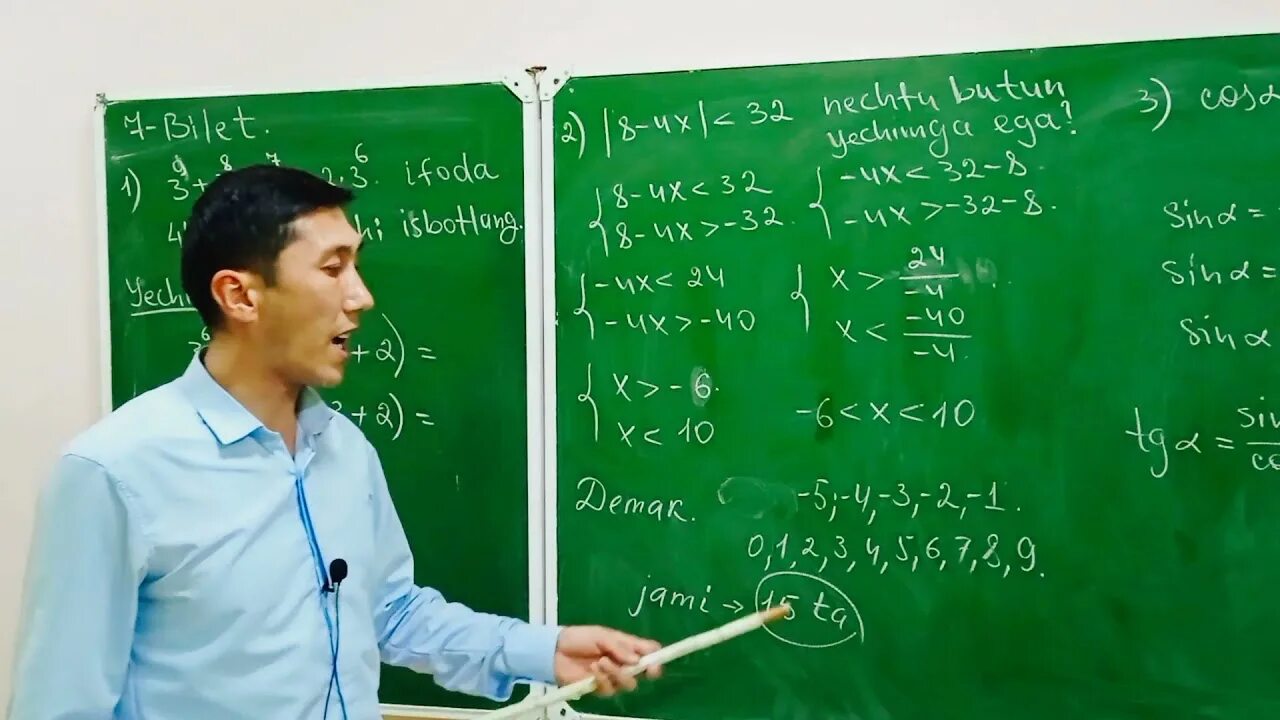 7-Bilet.
1) 3⁹+ ⁸ ⁷ 2·3⁶. ifoda
isbotlang.
Yech
3⁶ +2)=
+2)=
2) |8-4x|<32 nechta butun
yechimga ega?
{8-4x<32 {-4x<32-8.
8-4x>-32. -4x>-32-8.
{-4x<24 {x> 24/-4
-4x>-40 x< -40/-4.
{x>-6. -6<x<10
x<10
Demak. -5,-4,-3,-2,-1.
0,1,2,3,4,5,6,7,8,9.
jami → 15 ta
3) cosα
sinα=
sinα=
sinα
tgα = sin/co